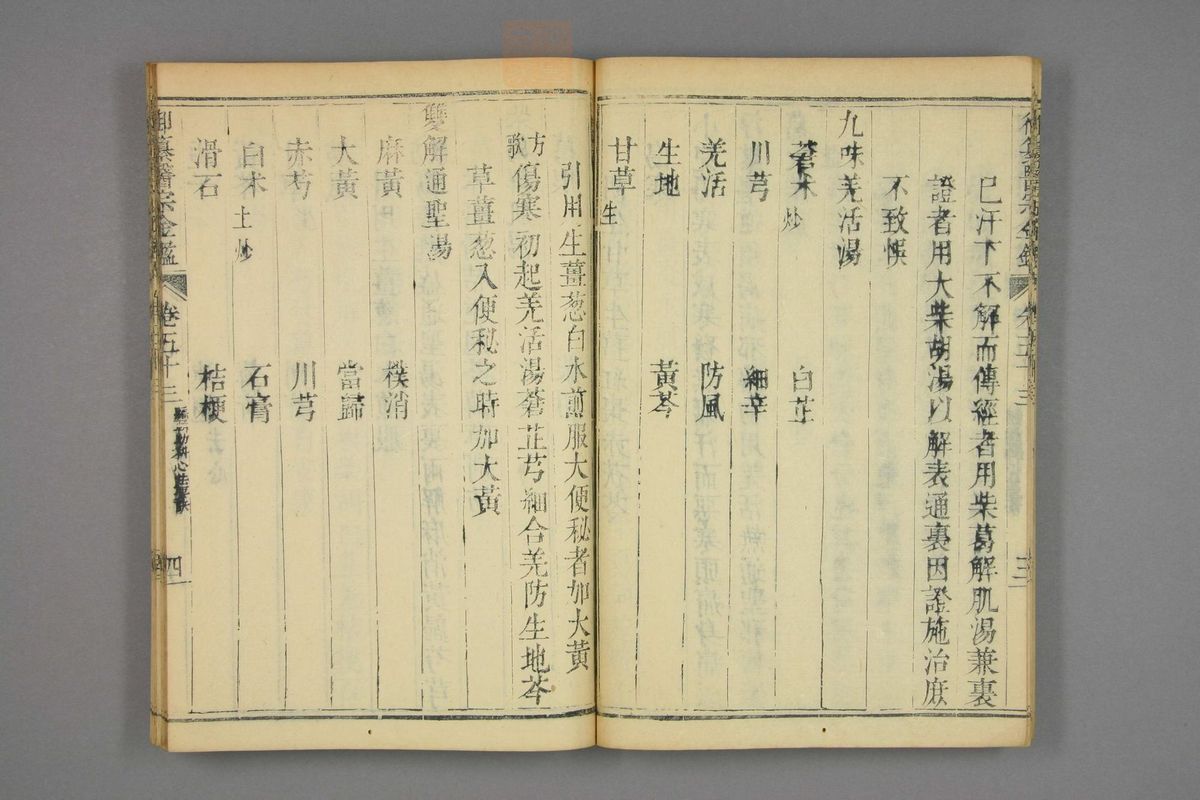 已汗下不解而傳經者用柴葛解肌湯兼裏
證者用大柴胡湯以解表通裏因證施治庶
不致悞
九味羌活湯
蒼朮炒 白芷
川芎 細辛
羌活 防風
生地 黃芩
甘草生
引用生薑葱白水煎服大便秘者加大黃
方歌 傷寒初起羌活湯蒼芷芎細合羌防生地芩
草薑葱入便秘之時加大黃
雙解通聖湯
麻黃 樸消
大黃 當歸
赤芍 川芎
白朮土炒 石膏
滑石 桔梗
御纂醫宗金鑑 卷五十三 四